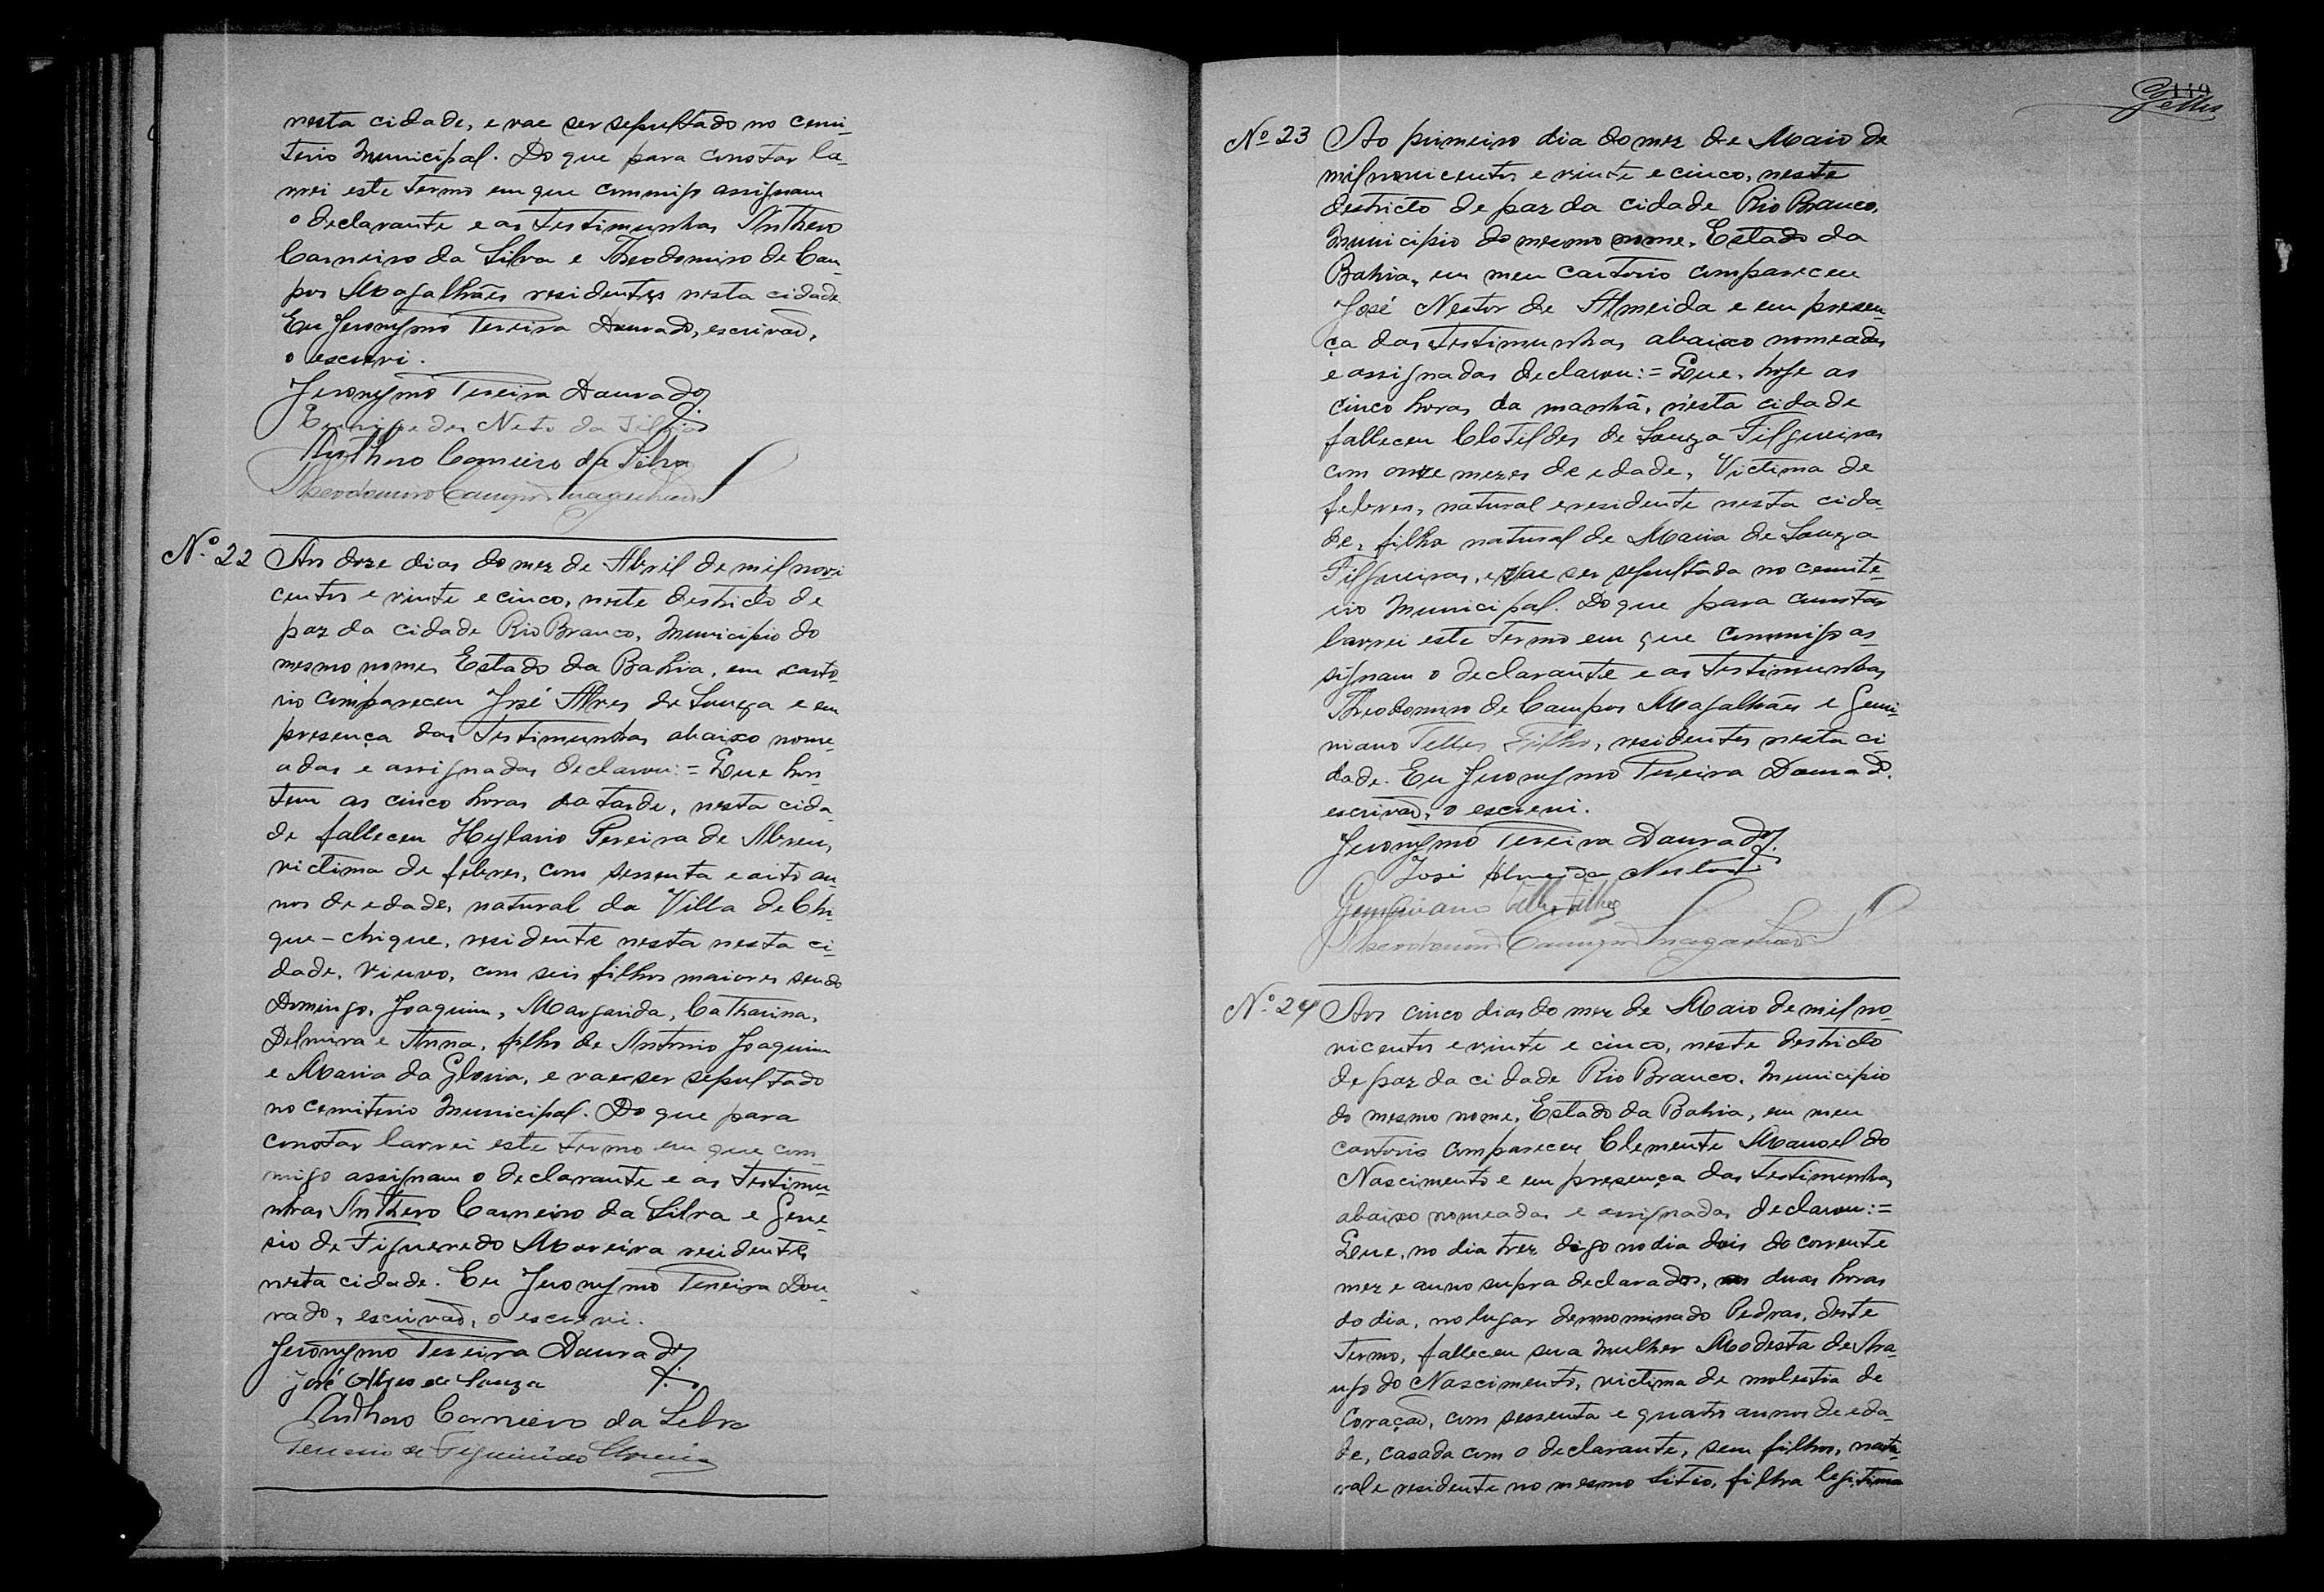 nesta cidade, e vae ser sepultado no cemi-
terio Municipal. Do que para constar la-
vrei este termo em que commigo assignam
o declarante e as testimunhas Anthero
Carneiro da Silva e Theodomiro de Cam-
pos Magalhães residentes nesta cidade.
Eu Jeronymo Pereira Dourado, escrivão,
o escrevi.
Jeronymo Pereira Dourado
Neto da
Anthero Carneiro da Silva
Theodomiro Campos Magalhães
Nº 22 Aos doze dias do mez de Abril de mil novi
centos e vinte e cinco, neste destricto de
paz da cidade Rio Branco, Municipio do
mesmo nome, Estado da Bahia, em carto-
rio compareceu José Alves de Souza e em
presença das testimunhas abaixo nome-
adas e assignadas declarou:= Que hon-
tem as cinco horas da tarde, nesta cida-
de falleceu Hylario Pereira de Abreu,
victima de febres, com sessenta e oito an-
nos de edade, natural da Villa de Chi-
que-chique, residente nesta nesta ci-
dade, viuvo, com seis filhos maiores sendo
Domingo, Joaquim, Margarida, Catharina,
Delmira e Anna, filho de Antonio Joaquim
e Maria da Gloria, e vae ser sepultado
no cemiterio Municipal. Do que para
constar lavrei este termo em que com-
migo assignam o declarante e as testimu-
nhas Anthero Carneiro da Silva e Gene-
sio de Figueredo Moreira residentes
nesta cidade. Eu Jeronymo Pereira Dou-
rado, escrivão, o escrevi.
Jeronymo Pereira Dourado
José Alves de Souza
Anthero Carneiro da Silva
de Figueiredo
119
Telles
Nº 23 Ao primeiro dia do mez de Maio de
mil novicentos e vinte e cinco, neste
destricto de paz da cidade Rio Branco,
Municipio do mesmo nome, Estado da
Bahia, em meu cartorio compareceu
José Nestor de Almeida e em presen-
ça das testimunhas abaixo nomeadas
e assignadas declarou:= Que, hoje as
cinco horas da manhã, nesta cidade
falleceu Clotildes de Souza Filgueiras
com onze mezes de edade, Victima de
febres, natural e residente nesta cida-
de, filha natural de Maria de Souza
Filgueiras, e vae ser sepultada no cemite-
rio Municipal. Do que para constar
lavrei este termo em que commigo as-
signam o declarante e as testimunhas
Theodomiro de Campos Magalhães e Gemi-
niano Telles Filho, residentes nesta ci-
dade. Eu Jeronymo Pereira Dourado.
escrivão, o escrevi.
Jeronymo Pereira Dourado.
José Almeida Nestor
Geminiano Telles Filho
Theodomiro Campos Magalhães
Nº 24 Aos cinco dias do mez de Maio de mil no-
vicentos e vinte e cinco, neste destricto
de paz da cidade Rio Branco, Municipio
do mesmo nome, Estado da Bahia, em meu
cartorio compareceu Clemente Manoel do
Nascimento e em presença das testimunhas
abaixo nomeadas e assignadas declarou:=
Que, no dia trez digo no dia dois do corrente
mez e anno supra declarados, as duas horas
do dia, no lugar dennominado Pedras, deste
termo, falleceu sua mulher Modesta de Ara-
ujo do Nascimento, victima de molestia de
Coração, com sessenta e quatro annos de eda-
de, casada com o declarante, sem filhos, natu-
ral e residente no mesmo sitio, filha legitima